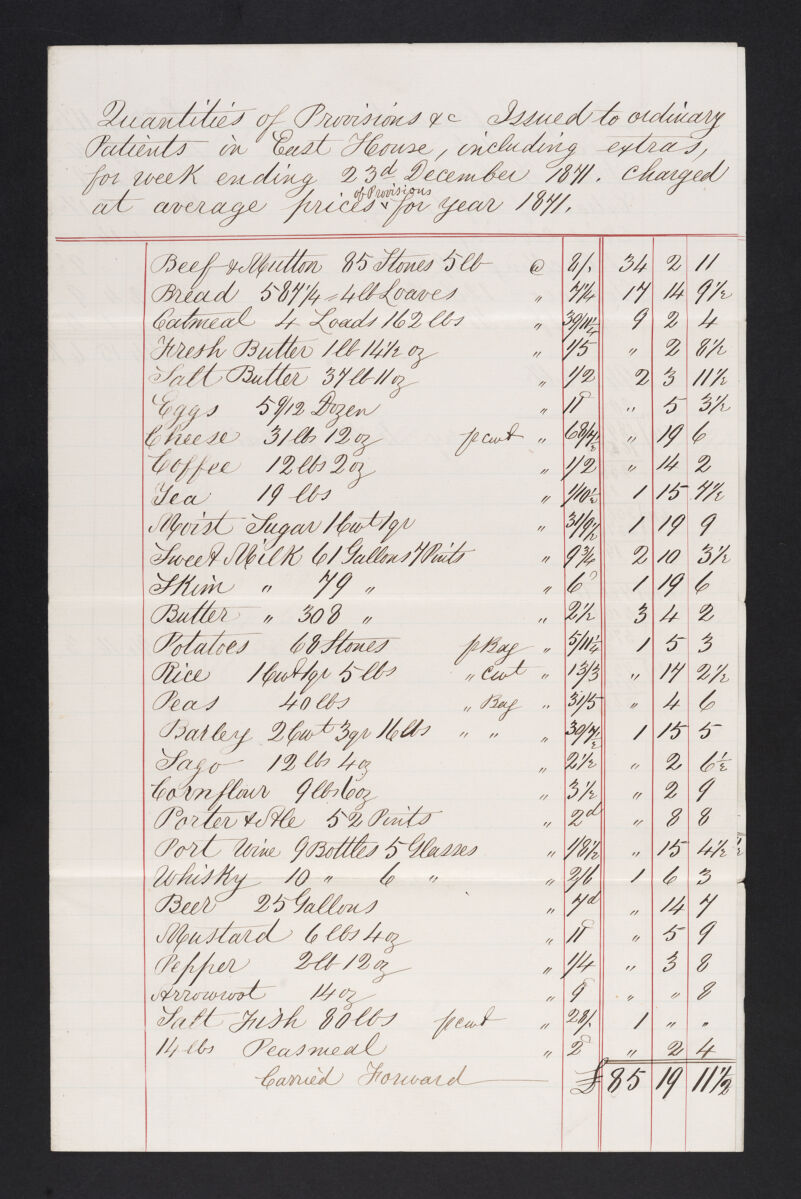 Quantities of Provisions &c Issued to ordinary
Patients in East House, including extras,
for week ending 23d December 1871. charged
at average prices of Provisions for year 1871.
Beef & Mutton 85 Stones 5 lb @ 8/. 34 2 11
Bread 587¼ = 4 lb Loaves " 7¼ 17 14 9½
Oatmeal 4 Loads 162 lbs " 39/11¼ 9 2 4
Fresh Butter 1 lb 14½ oz " 1/5 " 2 8½
Salt Butter 37 lb 11 oz " 1/2 2 3 11½
Eggs 5 9/12 Dozen " 11d " 5 3½
Cheese 31 lbs 12 oz p cwt " 68/7½ " 19 6
Coffee 12 lbs 2 oz " 1/2 " 14 2
Tea 19 lbs " 1/10½ 1 15 7½
Moist Sugar 1 Cwt 1 qr " 31/9½ 1 19 9
Sweet Milk 61 Gallons 7 Pints " 9¾ 2 10 3½
Skim " 79 " " 6d 1 19 6
Butter " 308 " " 2½ 3 4 2
Potatoes 68 Stones p Bag " 5/11¼ 1 5 3
Rice 1 Cwt 1 qr 5 lbs " cwt " 13/3 " 17 2½
Peas 40 lbs " Bag " 31/5 " 4 6
Barley 2 Cwt 3 qr 16 lbs " " " 30/7½ 1 15 5
Sago 12 lbs 4 oz " 2½ " 2 6½
Cornflour 9 lbs 6 oz " 3½ " 2 9
Porter & Ale 52 Pints " 2d " 8 8
Port Wine 9 Bottles 5 Glasses " 1/8½ " 15 4½
Whisky 10 " 6 " " 2/6 1 6 3
Beer 25 Gallons " 7d " 14 7
Mustard 6 lbs 4 oz " 11d " 5 9
Pepper 2 lb 12 oz " 1/4 " 3 8
Arrowroot 14 oz " 9d " " 8
Salt Fish 80 lbs p cwt " 28/. 1 " "
14 lbs Peasmeal " 2d " 2 4
Carried Forward £ 85 19 11½